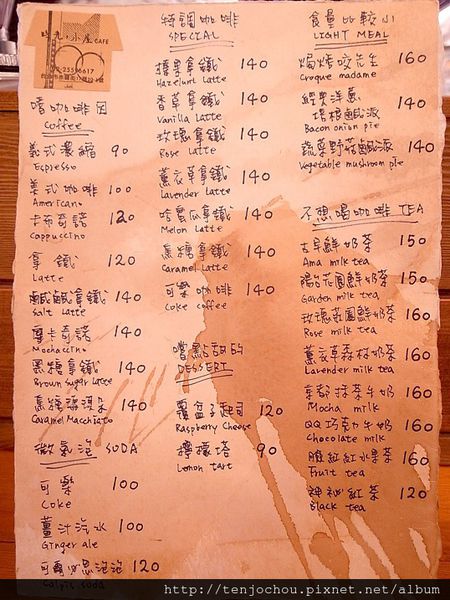 時光小屋 CAFE
02-25586617
嚐咖啡因
Coffee
義式濃縮 90
Espresso
美式咖啡 100
Americano
卡布奇諾 120
Cappuccino
拿鐵 120
Latte
鹹鹹拿鐵 140
Salt Latte
摩卡奇諾 140
Mochaccino
黑糖拿鐵 140
Brown sugar Latte
焦糖瑪琪朵 140
Caramel Macchiato
微氣泡 SODA
可樂 100
Coke
薑汁汽水 100
Ginger ale
可爾必思泡泡 120
Calpis soda
特調咖啡
SPECIAL
榛果拿鐵 140
Hazelunt Latte
香草拿鐵 140
Vanilla Latte
玫瑰拿鐵 140
Rose Latte
薰衣草拿鐵 140
Lavender Latte
哈密瓜拿鐵 140
Melon Latte
焦糖拿鐵 140
Caramel Latte
可樂咖啡 140
Coke coffee
嚐點甜的
DESSERT
覆盆子起司 120
Raspberry Cheese
檸檬塔 90
Lemon tart
食量比較小
LIGHT MEAL
焗烤咬先生 160
Croque madame
經典洋蔥
培根鹹派 140
Bacon onion pie
蔬菜野菇鹹派 140
Vegetable mushroom pie
不想喝咖啡 TEA
古早鮮奶茶 150
Ama milk tea
陽台花園鮮奶茶 150
Garden milk tea
玫瑰莊園鮮奶茶 160
Rose milk tea
薰衣草森林奶茶 160
Lavender milk tea
京都抹茶牛奶 160
Mocha milk
QQ巧克力牛奶 160
Chocolate milk
腮紅紅水果茶 160
Fruit tea
神祕紅茶 120
Black tea
http://tenjochou.pixnet.net/album